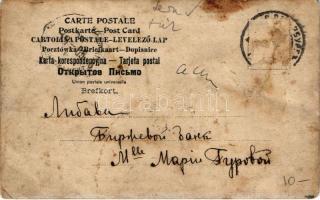 CARTE POSTALE
Postkarte—Post Card
CARTOLINA POSTALE-LEVELEZŐ-LAP
Pocztówka-Briefkaart-Dopisnice
Karta korespondencyjna — Tarjeta postal
Открытое Письмо
Union postale universelle
Brefkort.
Либава
Биржевой банк
Mlle Маріи Гуровой
10-